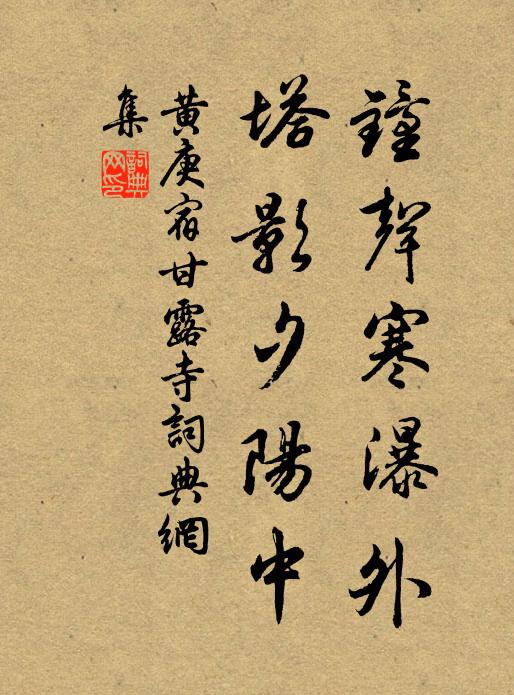 鐘聲寒瀑外
塔影夕陽中
黄庚宿甘露寺詞典網
集
詞典
网印